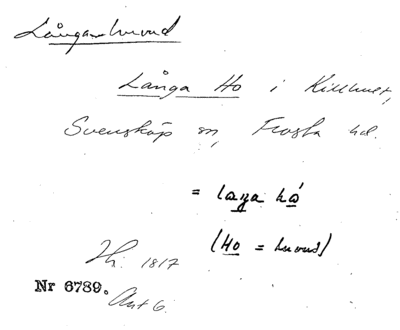 Långanhuvud
Långa Ho i Killhult,
Svensköp sn, Frosta hd.
= laŋa hó
(Ho = huvud)
Hs. 1817
Nr 6789.
Ant 6.